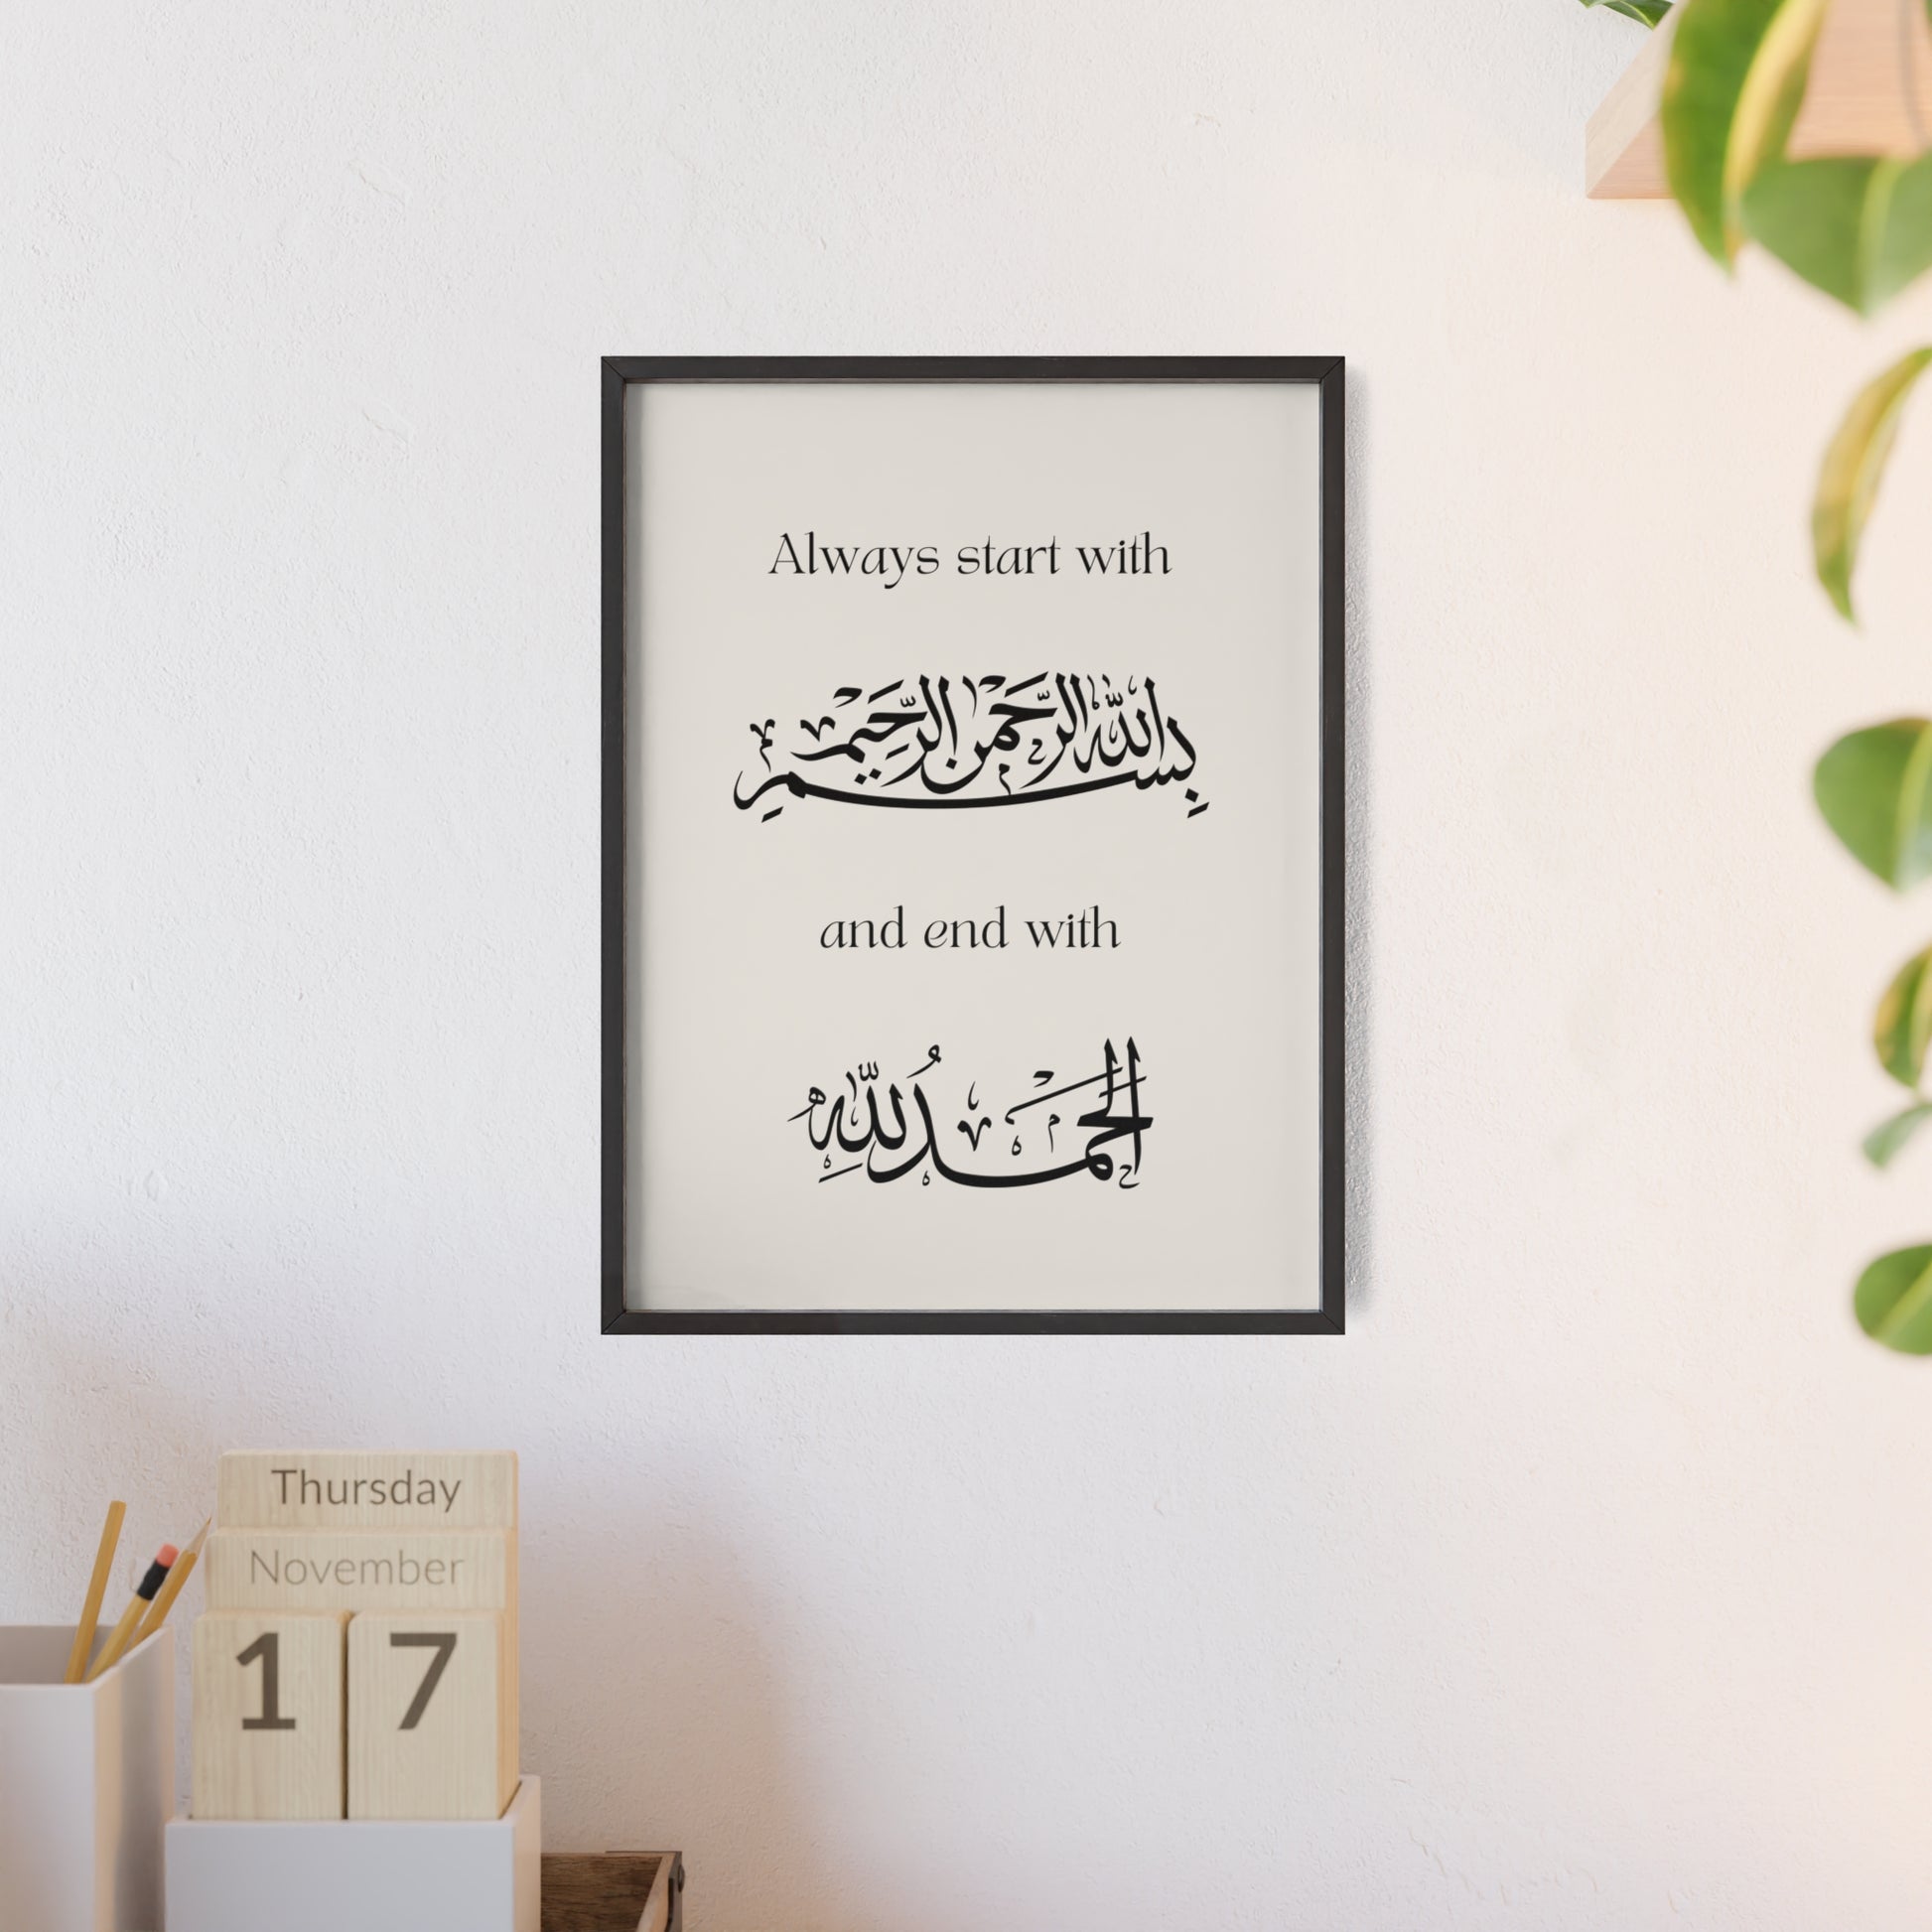 Always start with
بِسْمِ اللهِ الرَّحْمٰنِ الرَّحِيْمِ
and end with
الْحَمْدُ لِلّٰهِ
Thursday
November
17